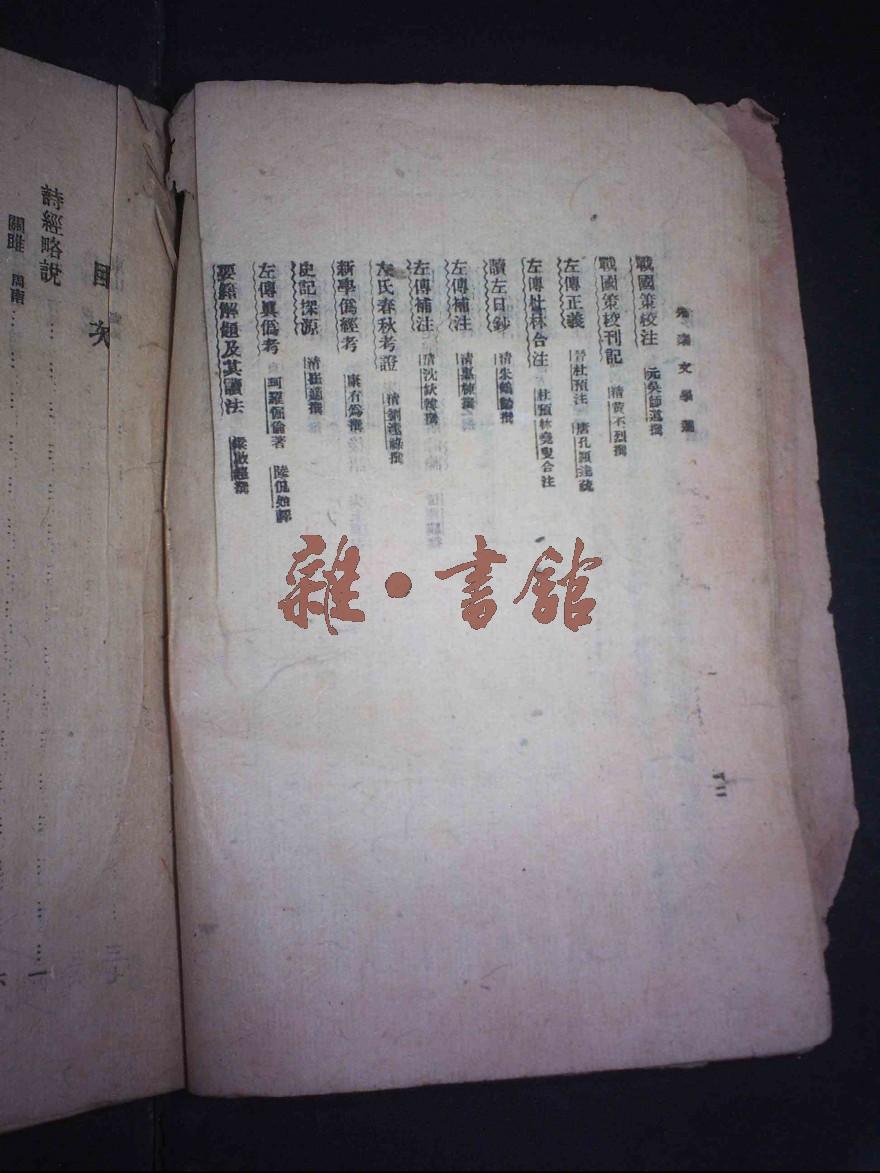 先秦文學選
戰國策校注 元吳師道撰
戰國策校刊記 清黄丕烈撰
左傳正義 晉杜預注 唐孔穎達疏
左傳杜林合注 杜預林堯叟合注
讀左日鈔 清朱鶴齡撰
左傳補注 清惠棟撰
左傳補注 清沈欽韓撰
左氏春秋考證 清劉逢祿撰
新學僞經考 康有爲撰
史記探源 清崔適撰
左傳眞僞考 珂羅倔倫著 陸侃如譯
要籍解題及其讀法 梁啟超撰
目次
詩經略說 一
關雎 周南 六
雜·書館